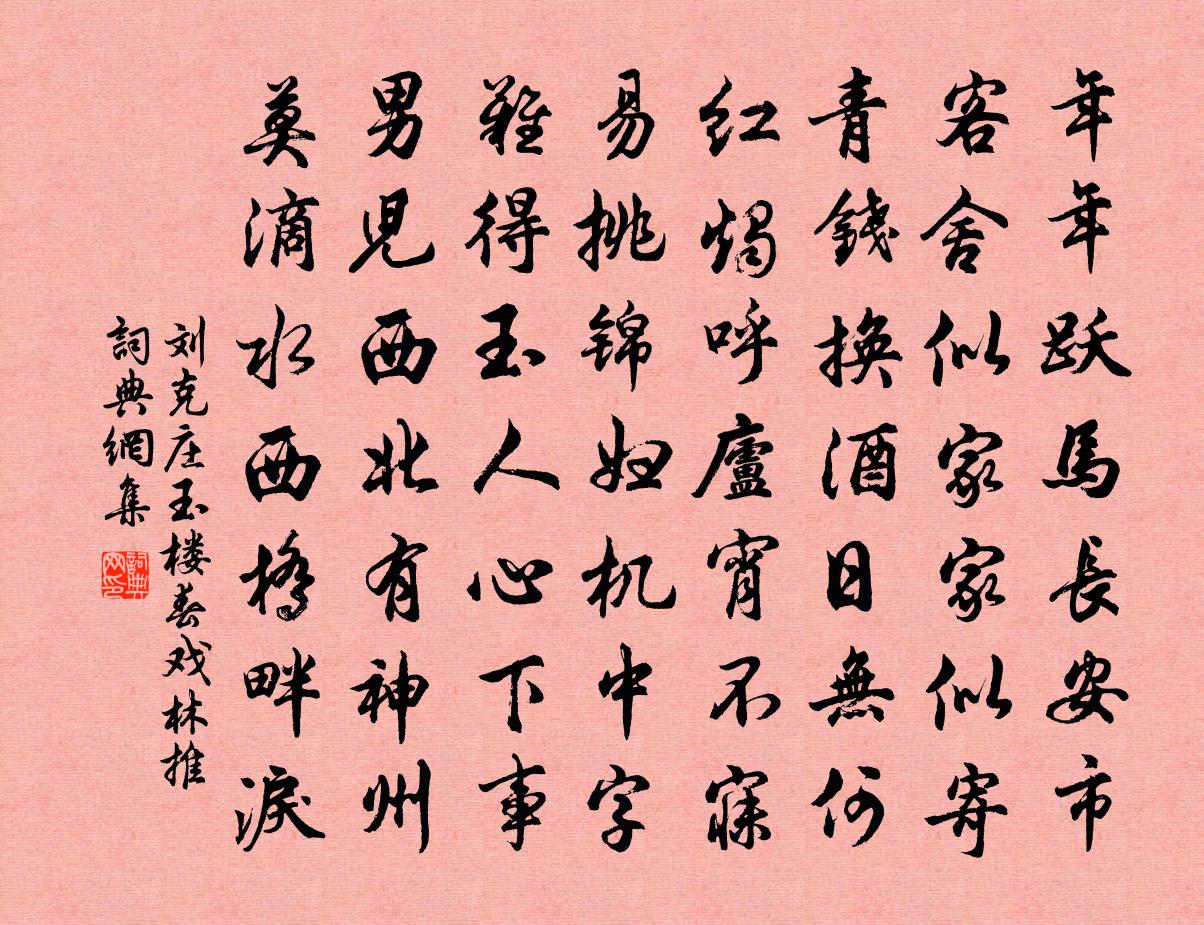 年年跃馬長安市
客舍似家家似寄
青錢換酒日無何
红燭呼廬宵不寐
易挑锦妇机中字
難得玉人心下事
男兒西北有神州
莫滴水西橋畔淚
刘克庄玉楼春戏林推
詞典網集
詞典网印